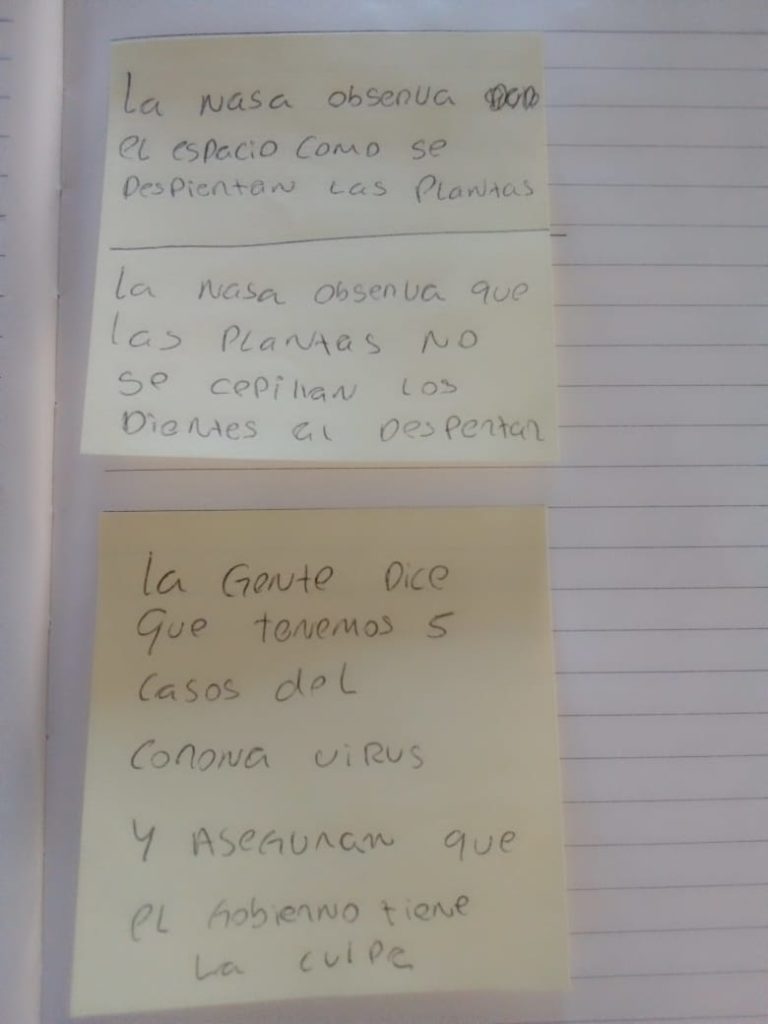 La nasa observa
el espacio como se
Despiertan las Plantas
La nasa observa que
las Plantas no
se cepillan los
Dientes al Despertar
la Gente Dice
que tenemos 5
casos del
corona virus
y Aseguran que
el Gobierno tiene
la culpa